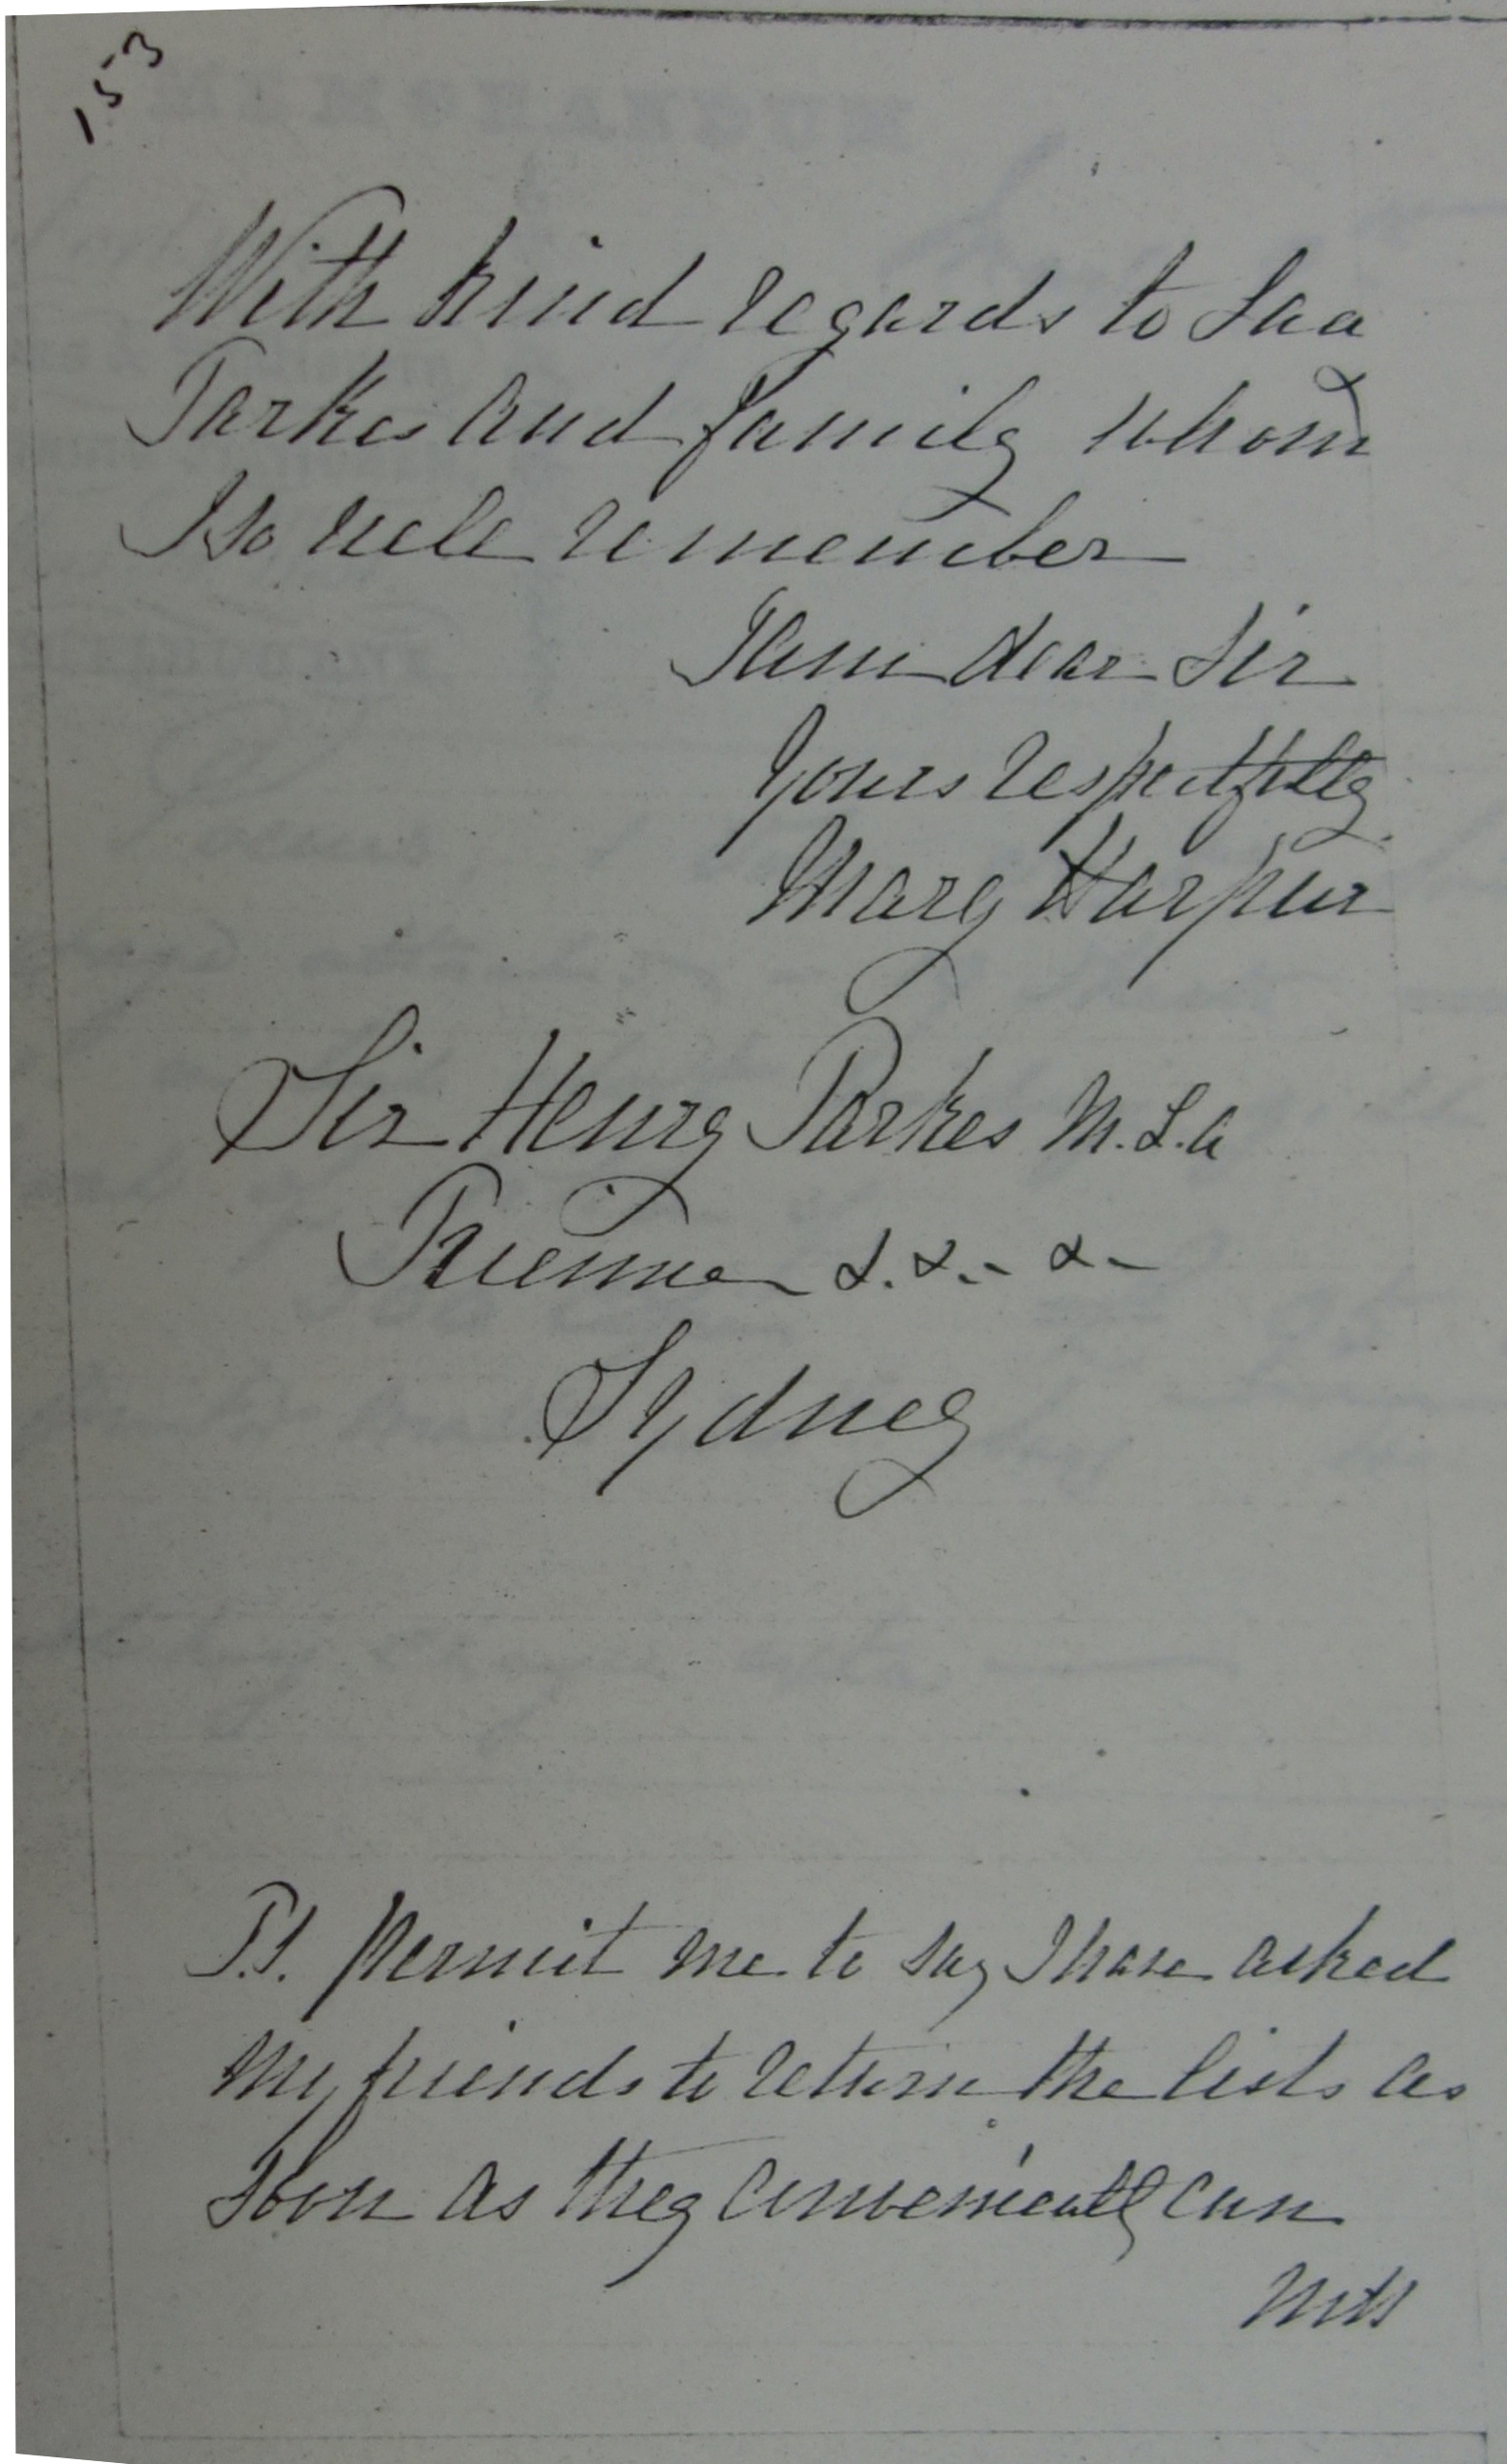 153
With kind regards to Lady
Parkes and family whom
I so well remember
I am dear Sir
Yours respectfully
Mary Harpur
Sir Henry Parkes M.L.A
Premier &. &. &.
Sydney
P.S. Permit me to say I have asked
my friends to return the lists as
soon as they conveniently can
MH